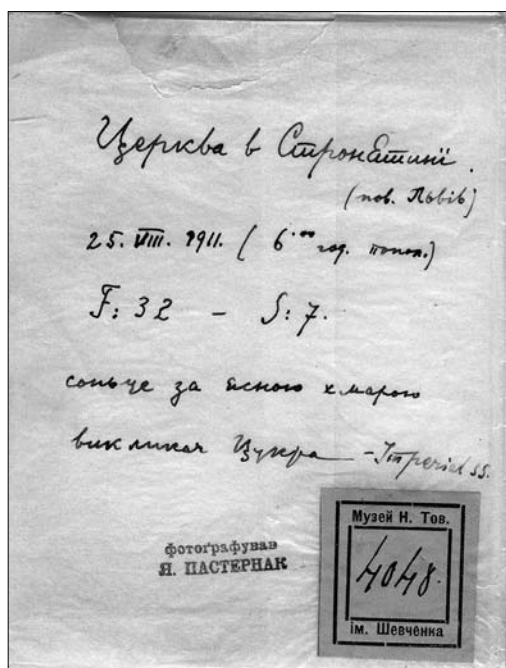 Церква в Стронятині.
(пов. Львів)
25. VIII. 1911. (6.00 год. попол.)
F: 32 – S: 7.
соньце за ясною хмарою
викликач Цукра – Imperial SS.
фотоґрафував
Я. ПАСТЕРНАК
Музей Н. Тов.
4048.
ім. Шевченка